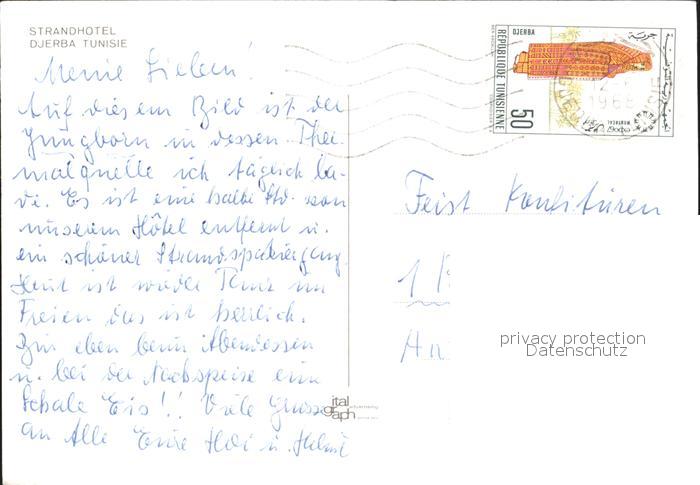 STRANDHOTEL
DJERBA TUNISIE
Meine Lieben!
Auf diesem Bild ist der
Jungborn in dessen Ther-
malquelle ich täglich ba-
de. Es ist eine halbe Std. von
unserem Hôtel entfernt u.
ein schöner Strandspaziergang.
Heut ist wieder Tanz im
Freien das ist herrlich.
Bin eben beim Abendessen
u. bei der Nachspeise eine
Schale Eis!! Viele Grüsse
an Alle Eure u.
ital
graph
advertising
DJERBA
REPUBLIQUE TUNISIENNE
50
جربة
1968
Feist Konfitüren
1
privacy protection
Datenschutz